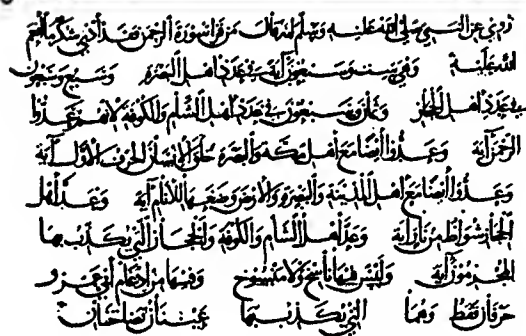 روي عن النبي صلى الله عليه وسلم انه قال من قرا سورة الرحمن فقد أدى شكر ما أنعم
الله عليه وهي ست وسبعون آية في عدد اهل البصرة وسبع وسبعون
في عدد اهل الحجاز وثمان وسبعون في عدد اهل الشام والكوفة لانهم عدوا
الرحمن آية وعدوا ايضا مع اهل مكة والبصرة خلق الانسان الحرف الاول آية
وعدوا ايضا مع اهل المدينة والبصرة والارض وضعها للانام آية وعد أهل
الحجاز شواظ من نار آية وعد أهل الشام والكوفة والحجاز التي يكذب بها
المجرمون آية وليس فيها ناسخ ولا منسوخ وفيها من ادغام أبي عمرو
حرفان فقط وهما التي يكذب بها عينان نضاختان